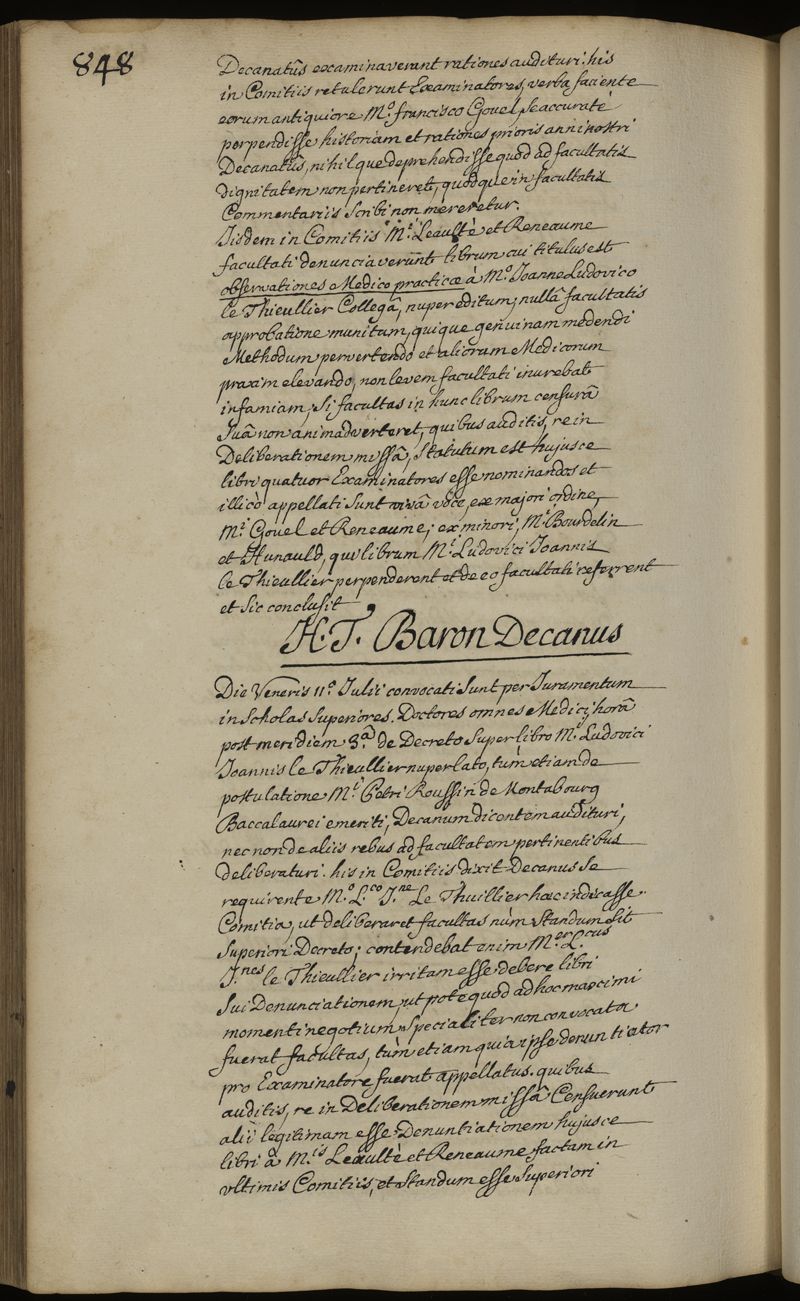 848
Decanatûs examinaverunt rationes audituri. his
in Comitiis retulerunt Examinatores, verba faciente
eorum antiquiore M.º francisco Gouel, se accuratè
perpendisse historiam et rationes prioris anni nostri
Decanatûs, nihilque deprehendisse quod ad facultatis
dignitatem non pertineret, quodque in facultatis
Commentariis scribi non mereretur.
Iisdem in Comitiis M.i Leaultè et Reneaume
facultati denunciaverunt librum cui titulus est
observationes Medico practicæ à M.º Joanne Ludovico
le Thieullier Collegâ, nuper editum, nullâ facultatis
approbatione munitum, quique genuinam medendi
Methodum pervertendo et aliorum Medicorum
praxim elevando, non levem facultati inurebat
infamiam, si facultas in hunc librum censurâ
suâ non animadverteret, quibus auditis, re in
Deliberationem missâ, statutum est hujusce
libri quatuor Examinatores esse nominandos et
illicò appellati sunt vivâ voce, ex majori ordine,
M.i Gouel et Reneaume; ex minori, M.i Bourdelin
et Hunauld, qui librum M.i Ludovici Joannis
le Thieullier perpenderent et de eo facultati referrent
et sic conclusit
H.T. Baron Decanus
Die Veneris 11.º Julii convocati sunt per Juramentum
in Scholas Superiores. Doctores omnes Medici, horâ
post meridiem 3.â de Decreto super libro M.i Ludovici
Joannis le Thieullier nuper lato, tùm etiam de
postulatione M.i Petri Roussin de Montabourg
Baccalaurei emeriti, Decanum dicentem audituri,
nec non de aliis rebus ad facultatem pertinentibus
deliberaturi. his in Comitiis dixit Decanus se
requirente M.º L.co J.ne Le Thuillier hæc indixasse
Comitia, ut deliberaret facultas nùm standum sit
superiori Decreto; contendebat enim M.er L.cus
J.nes le Thieullier irritam esse debere libri
sui Denunciationem, ut potè quod ad hoc maximi
momenti negotium specialiter non convocata
fuerat facultas, tùm etiam quia ipse denuntiator
pro Examinatore fuerat appellatus. quibus
auditis, re in Deliberationem missâ Censuerunt
alii legitimam esse Denuntiationem hujusce
libri à M.ris Leaultè et Reneaume factam in
ultimis Comitiis, et standum esse superiori